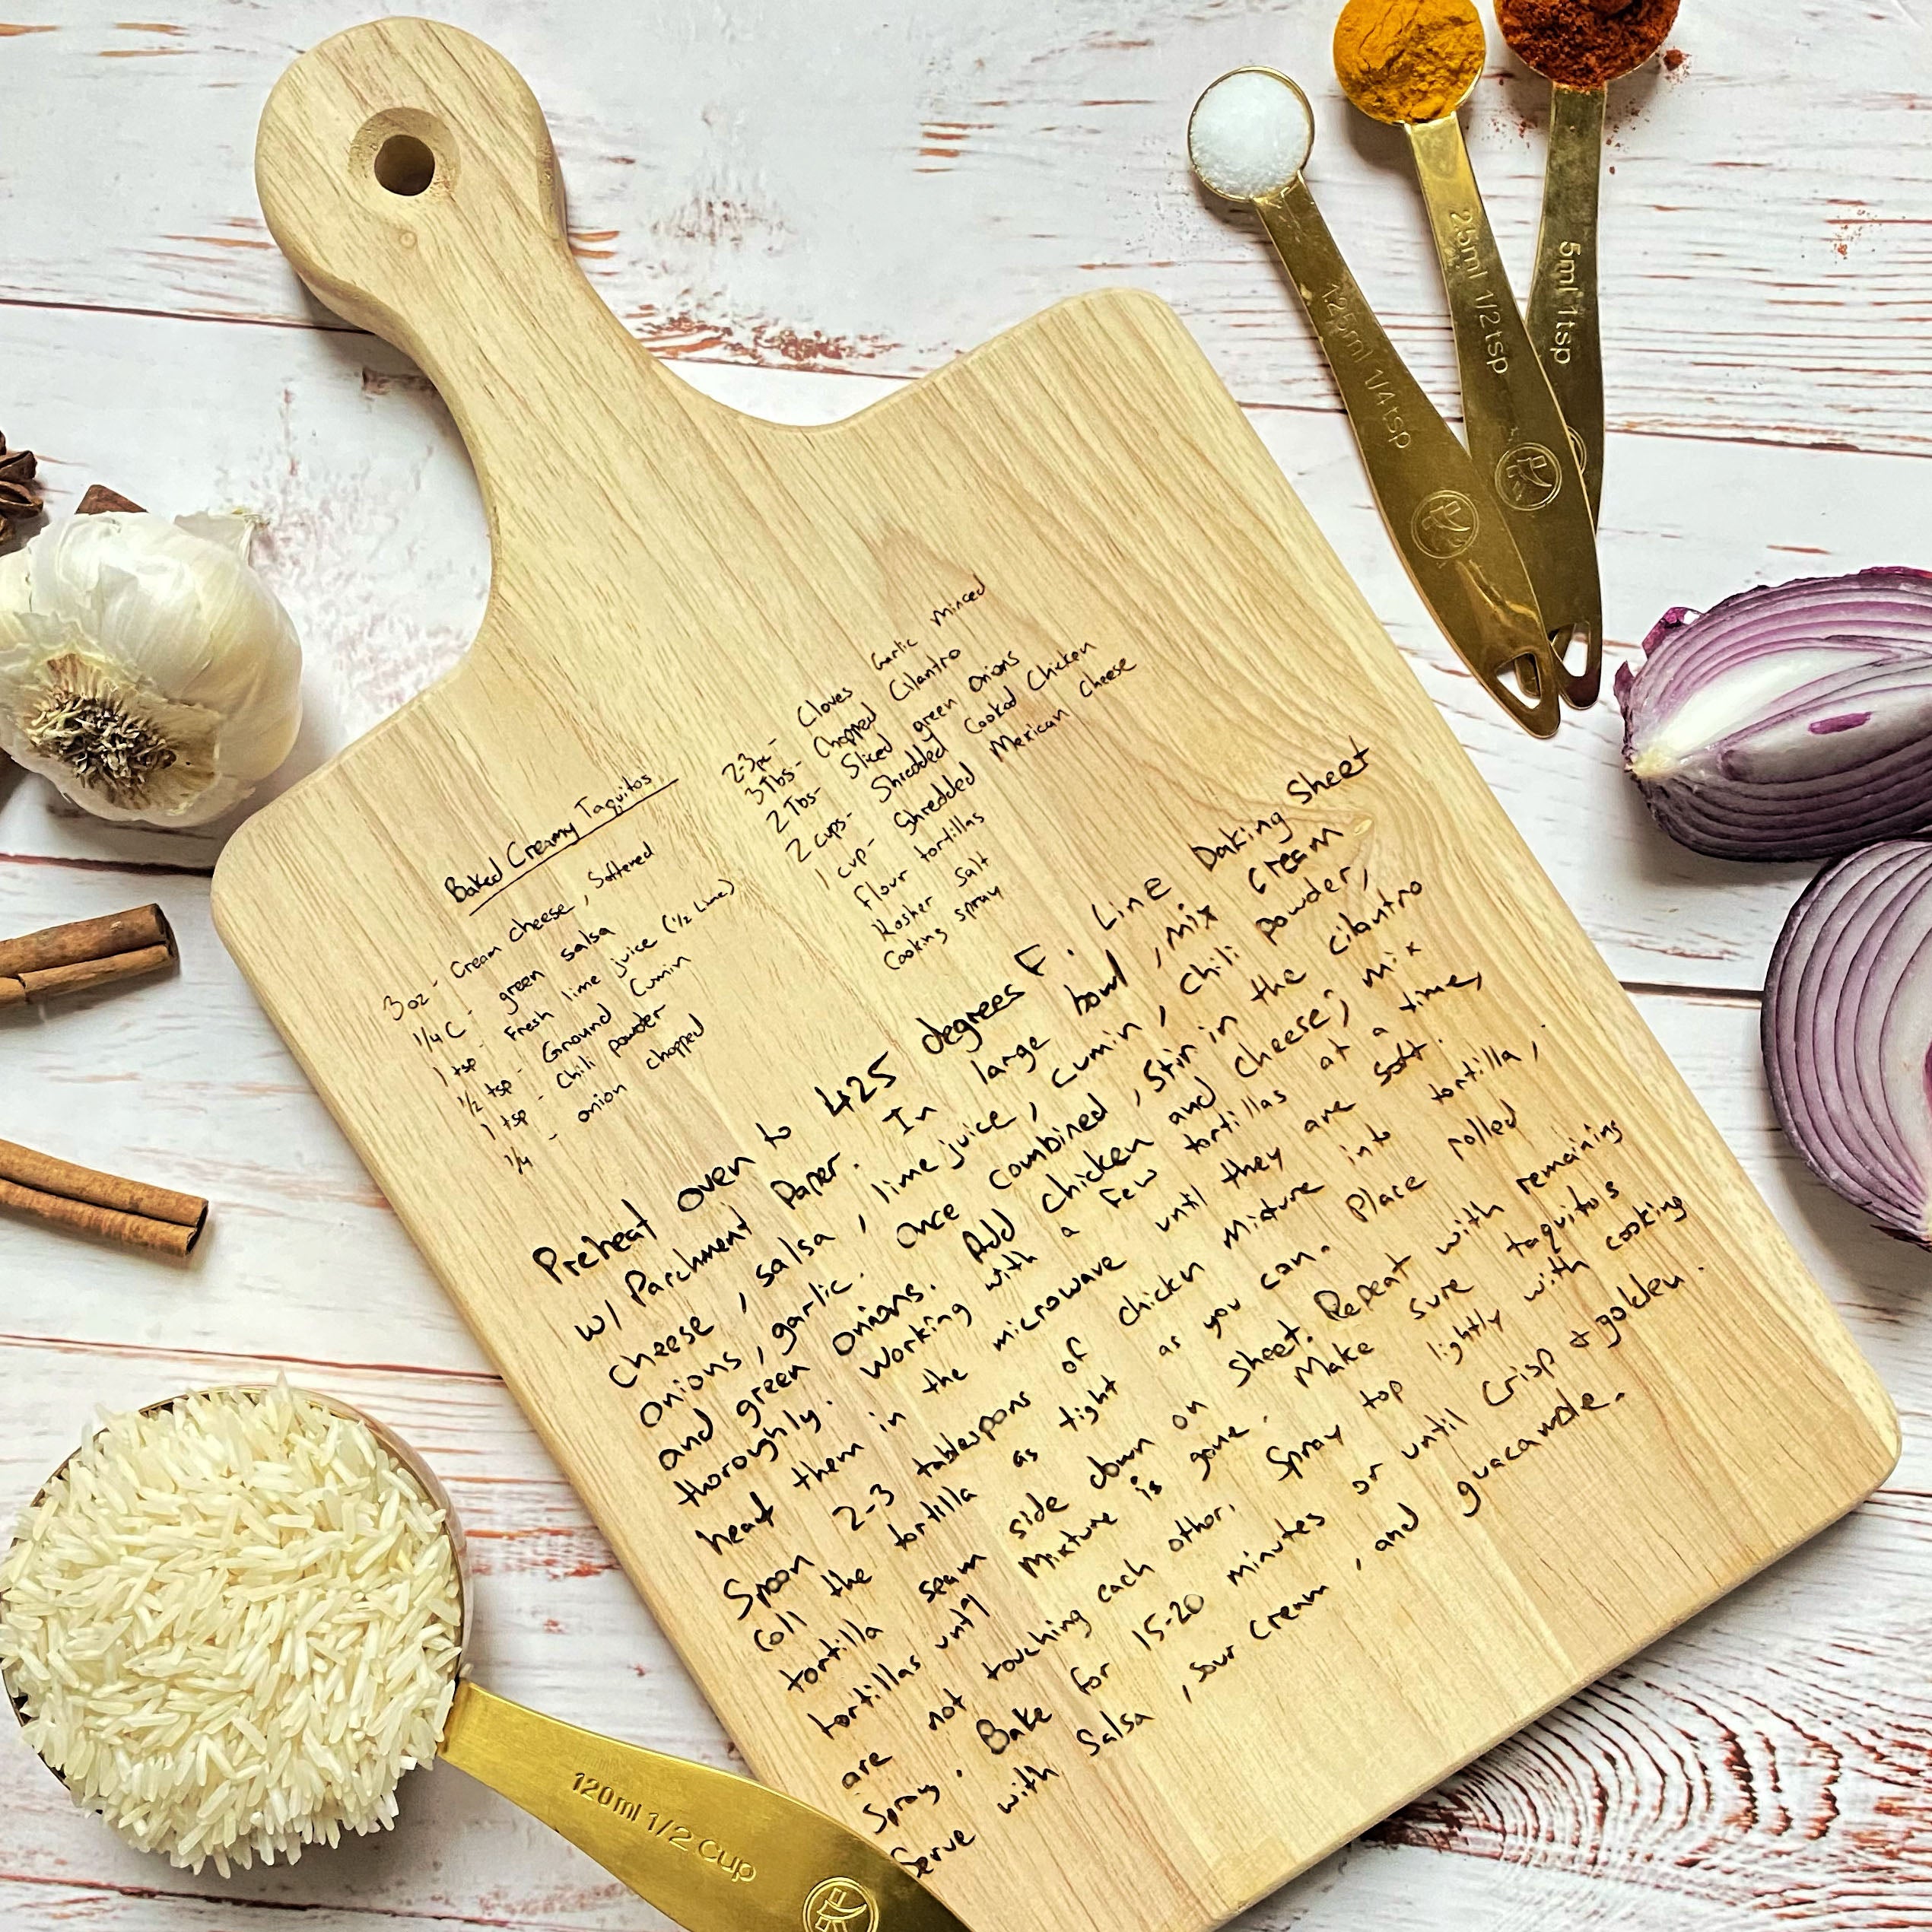 Baked Creamy Taquitos
3 oz - Cream cheese, Softened
1/4 C - green salsa
1 tsp - Fresh lime juice (1/2 Lime)
1/2 tsp - Ground Cumin
1 tsp - Chili powder
1/4 - onion chopped
2-3pc - Cloves Garlic Minced
3 Tbs - Chopped Cilantro
2 Tbs - Sliced green onions
2 cups - Shredded Cooked Chicken
1 cup - Shredded Mexican Cheese
Flour tortillas
Kosher Salt
Cooking spray
Preheat oven to 425 degrees F. LinE Baking Sheet
w/ Parchment Paper. In large bowl, mix Cream
Cheese, salsa, lime juice, Cumin, Chili Powder,
Onions, garlic. Once Combined, Stir in the Cilantro
and green onions. Add chicken and cheese; mix
thoroughly. Working with a few tortillas at a time,
heat them in the microwave until they are soft.
Spoon 2-3 tablespons of chicken Mixture into tortilla,
roll the tortilla as tight as you can. Place rolled
tortilla seam side down on Sheet. Repeat with remaining
tortillas until Mixture is gone. Make sure taquitos
are not touching each other. Spray top lightly with cooking
Spray. Bake for 15-20 minutes or until Crisp & golden.
Serve with Salsa, sour cream, and guacamole.
1.25ml 1/4tsp
2.5ml 1/2tsp
5ml 1tsp
120ml 1/2 Cup